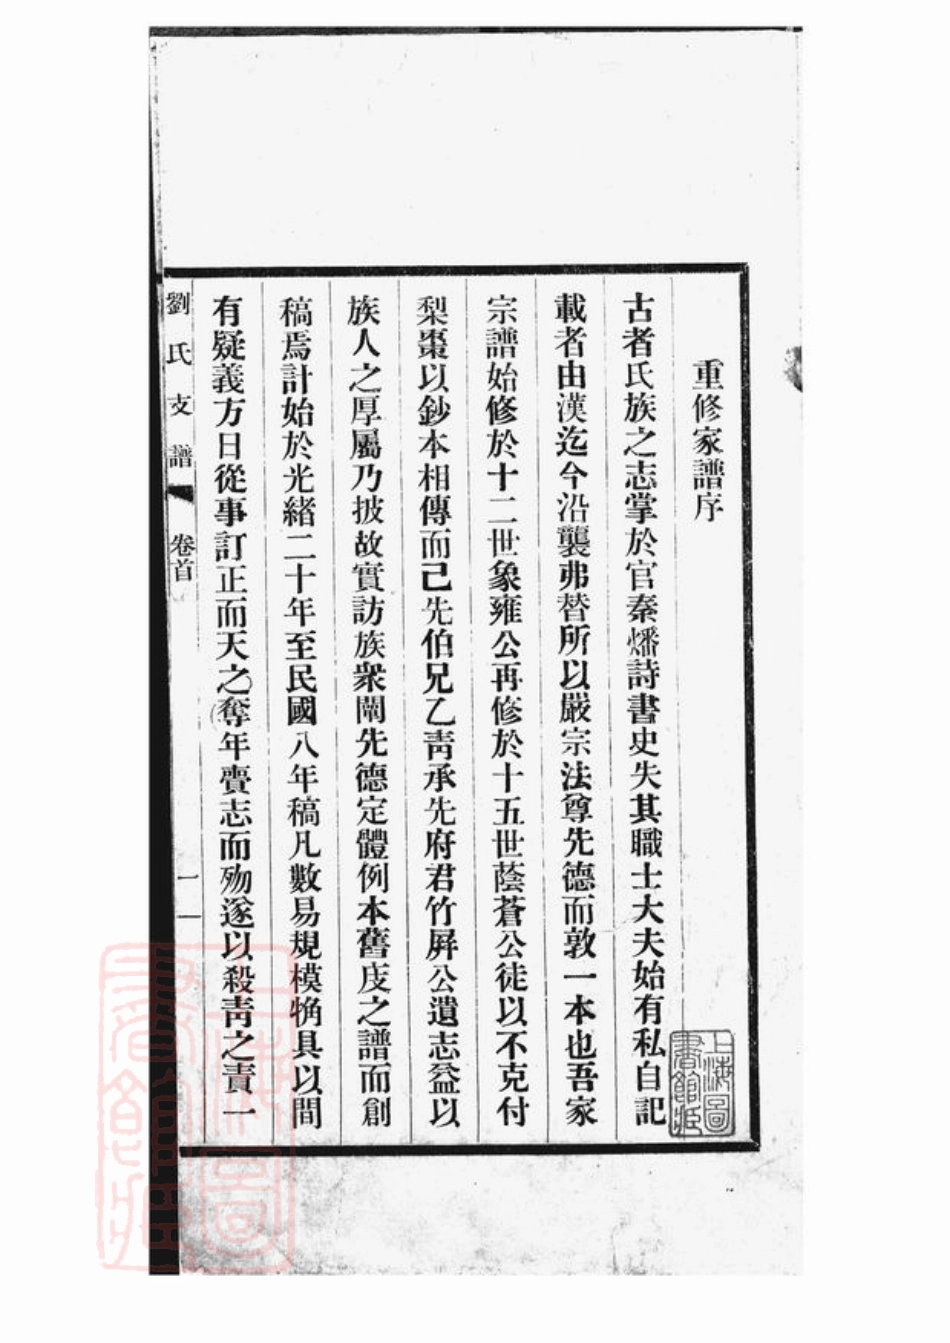 重修家譜序
古者氏族之志掌於官秦燔詩書史失其職士大夫始有私自記
載者由漢迄今沿襲弗替所以嚴宗法尊先德而敦一本也吾家
宗譜始修於十二世象雍公再修於十五世蔭蒼公徒以不克付
梨棗以鈔本相傳而已先伯兄乙靑承先府君竹屛公遺志益以
族人之厚屬乃披故實訪族衆闡先德定體例本舊庋之譜而創
稿焉計始於光緖二十年至民國八年稿凡數易規模觕具以間
有疑義方日從事訂正而天之奪年賫志而歾遂以殺靑之責一
劉氏支譜
卷首
一
上海圖書館藏
上海圖書館藏